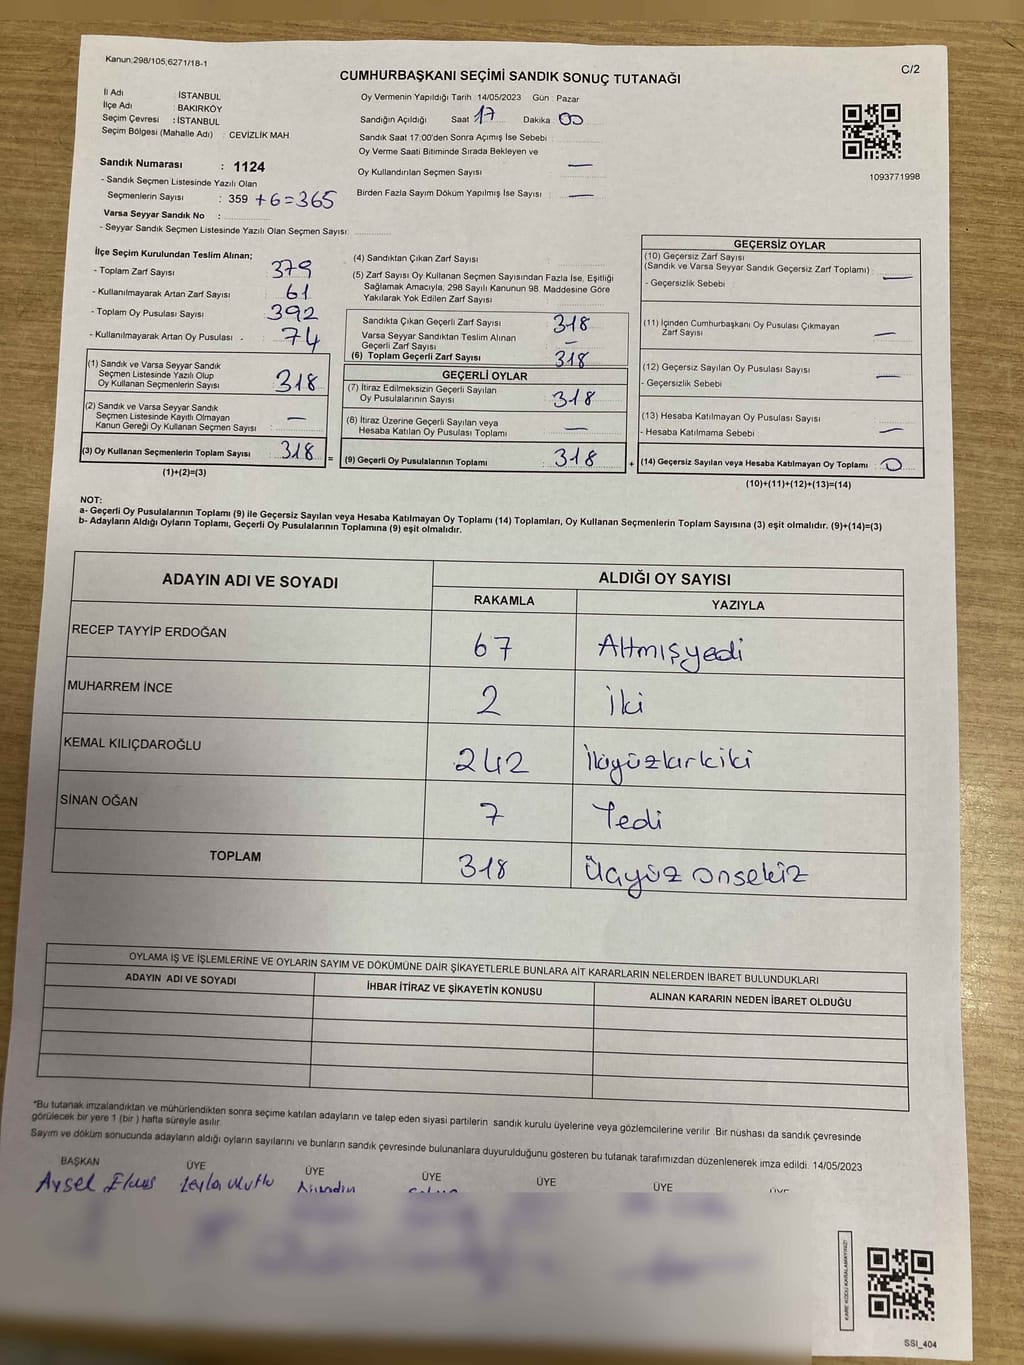 Kanun:298/105,6271/18-1
C/2
CUMHURBAŞKANI SEÇİMİ SANDIK SONUÇ TUTANAĞI
İl Adı : İSTANBUL
İlçe Adı : BAKIRKÖY
Seçim Çevresi : İSTANBUL
Seçim Bölgesi (Mahalle Adı) : CEVİZLİK MAH.
Sandık Numarası : 1124
- Sandık Seçmen Listesinde Yazılı Olan
Seçmenlerin Sayısı : 359 +6=365
Varsa Seyyar Sandık No :
- Seyyar Sandık Seçmen Listesinde Yazılı Olan Seçmen Sayısı:
Oy Vermenin Yapıldığı Tarih :14/05/2023 Gün : Pazar
Sandığın Açıldığı Saat 17 Dakika 00
Sandık Saat 17:00'den Sonra Açımış İse Sebebi :
Oy Verme Saati Bitiminde Sırada Bekleyen ve
Oy Kullandırılan Seçmen Sayısı : —
Birden Fazla Sayım Döküm Yapılmış İse Sayısı : —
1093771998
İlçe Seçim Kurulundan Teslim Alınan;
- Toplam Zarf Sayısı : 379
- Kullanılmayarak Artan Zarf Sayısı : 61
- Toplam Oy Pusulası Sayısı : 392
- Kullanılmayarak Artan Oy Pusulası : 74
(1) Sandık ve Varsa Seyyar Sandık
Seçmen Listesinde Yazılı Olup
Oy Kullanan Seçmenlerin Sayısı : 318
(2) Sandık ve Varsa Seyyar Sandık
Seçmen Listesinde Kayıtlı Olmayan
Kanun Gereği Oy Kullanan Seçmen Sayısı : —
(3) Oy Kullanan Seçmenlerin Toplam Sayısı : 318
(1)+(2)=(3)
(4) Sandıktan Çıkan Zarf Sayısı :
(5) Zarf Sayısı Oy Kullanan Seçmen Sayısından Fazla İse, Eşitliği
Sağlamak Amacıyla; 298 Sayılı Kanunun 98. Maddesine Göre
Yakılarak Yok Edilen Zarf Sayısı :
Sandıkta Çıkan Geçerli Zarf Sayısı : 318
Varsa Seyyar Sandıktan Teslim Alınan
Geçerli Zarf Sayısı : —
(6) Toplam Geçerli Zarf Sayısı : 318
GEÇERLİ OYLAR
(7) İtiraz Edilmeksizin Geçerli Sayılan
Oy Pusulalarının Sayısı : 318
(8) İtiraz Üzerine Geçerli Sayılan veya
Hesaba Katılan Oy Pusulası Toplamı : —
= (9) Geçerli Oy Pusulalarının Toplamı : 318
GEÇERSİZ OYLAR
(10) Geçersiz Zarf Sayısı
(Sandık ve Varsa Seyyar Sandık Geçersiz Zarf Toplamı) : —
- Geçersizlik Sebebi :
(11) İçinden Cumhurbaşkanı Oy Pusulası Çıkmayan
Zarf Sayısı : —
(12) Geçersiz Sayılan Oy Pusulası Sayısı : —
- Geçersizlik Sebebi :
(13) Hesaba Katılmayan Oy Pusulası Sayısı : —
- Hesaba Katılmama Sebebi :
+ (14) Geçersiz Sayılan veya Hesaba Katılmayan Oy Toplamı : 0
(10)+(11)+(12)+(13)=(14)
NOT:
a- Geçerli Oy Pusulalarının Toplamı (9) ile Geçersiz Sayılan veya Hesaba Katılmayan Oy Toplamı (14) Toplamları, Oy Kullanan Seçmenlerin Toplam Sayısına (3) eşit olmalıdır. (9)+(14)=(3)
b- Adayların Aldığı Oyların Toplamı, Geçerli Oy Pusulalarının Toplamına (9) eşit olmalıdır.
ADAYIN ADI VE SOYADI
ALDIĞI OY SAYISI
RAKAMLA YAZIYLA
RECEP TAYYİP ERDOĞAN 67 Altmışyedi
MUHARREM İNCE 2 İki
KEMAL KILIÇDAROĞLU 242 İkiyüzkırkiki
SİNAN OĞAN 7 Yedi
TOPLAM 318 Üçyüz onsekiz
OYLAMA İŞ VE İŞLEMLERİNE VE OYLARIN SAYIM VE DÖKÜMÜNE DAİR ŞİKAYETLERLE BUNLARA AİT KARARLARIN NELERDEN İBARET BULUNDUKLARI
ADAYIN ADI VE SOYADI İHBAR İTİRAZ VE ŞİKAYETİN KONUSU ALINAN KARARIN NEDEN İBARET OLDUĞU
*Bu tutanak imzalandıktan ve mühürlendikten sonra seçime katılan adayların ve talep eden siyasi partilerin sandık kurulu üyelerine veya gözlemcilerine verilir. Bir nüshası da sandık çevresinde
görülecek bir yere 1 (bir ) hafta süreyle asılır.
Sayım ve döküm sonucunda adayların aldığı oyların sayılarını ve bunların sandık çevresinde bulunanlara duyurulduğunu gösteren bu tutanak tarafımızdan düzenlenerek imza edildi. 14/05/2023
BAŞKAN ÜYE ÜYE ÜYE ÜYE ÜYE ÜYE
Aysel Leyla Mutlu
KARE KODU KARALAMAYINIZ!
SSI_404